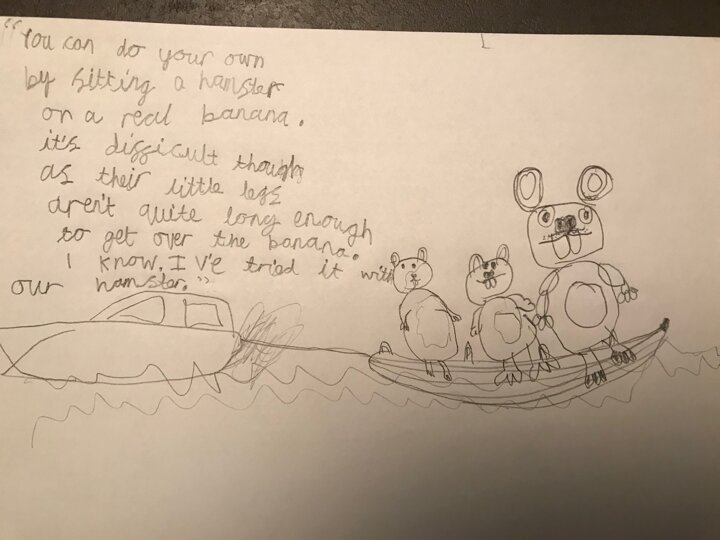 "You can do your own
by sitting a hamster
on a real banana.
it's difficult though
as their little legs
aren't quite long enough
to get over the banana.
I know, I v'e tried it with
our hamster."